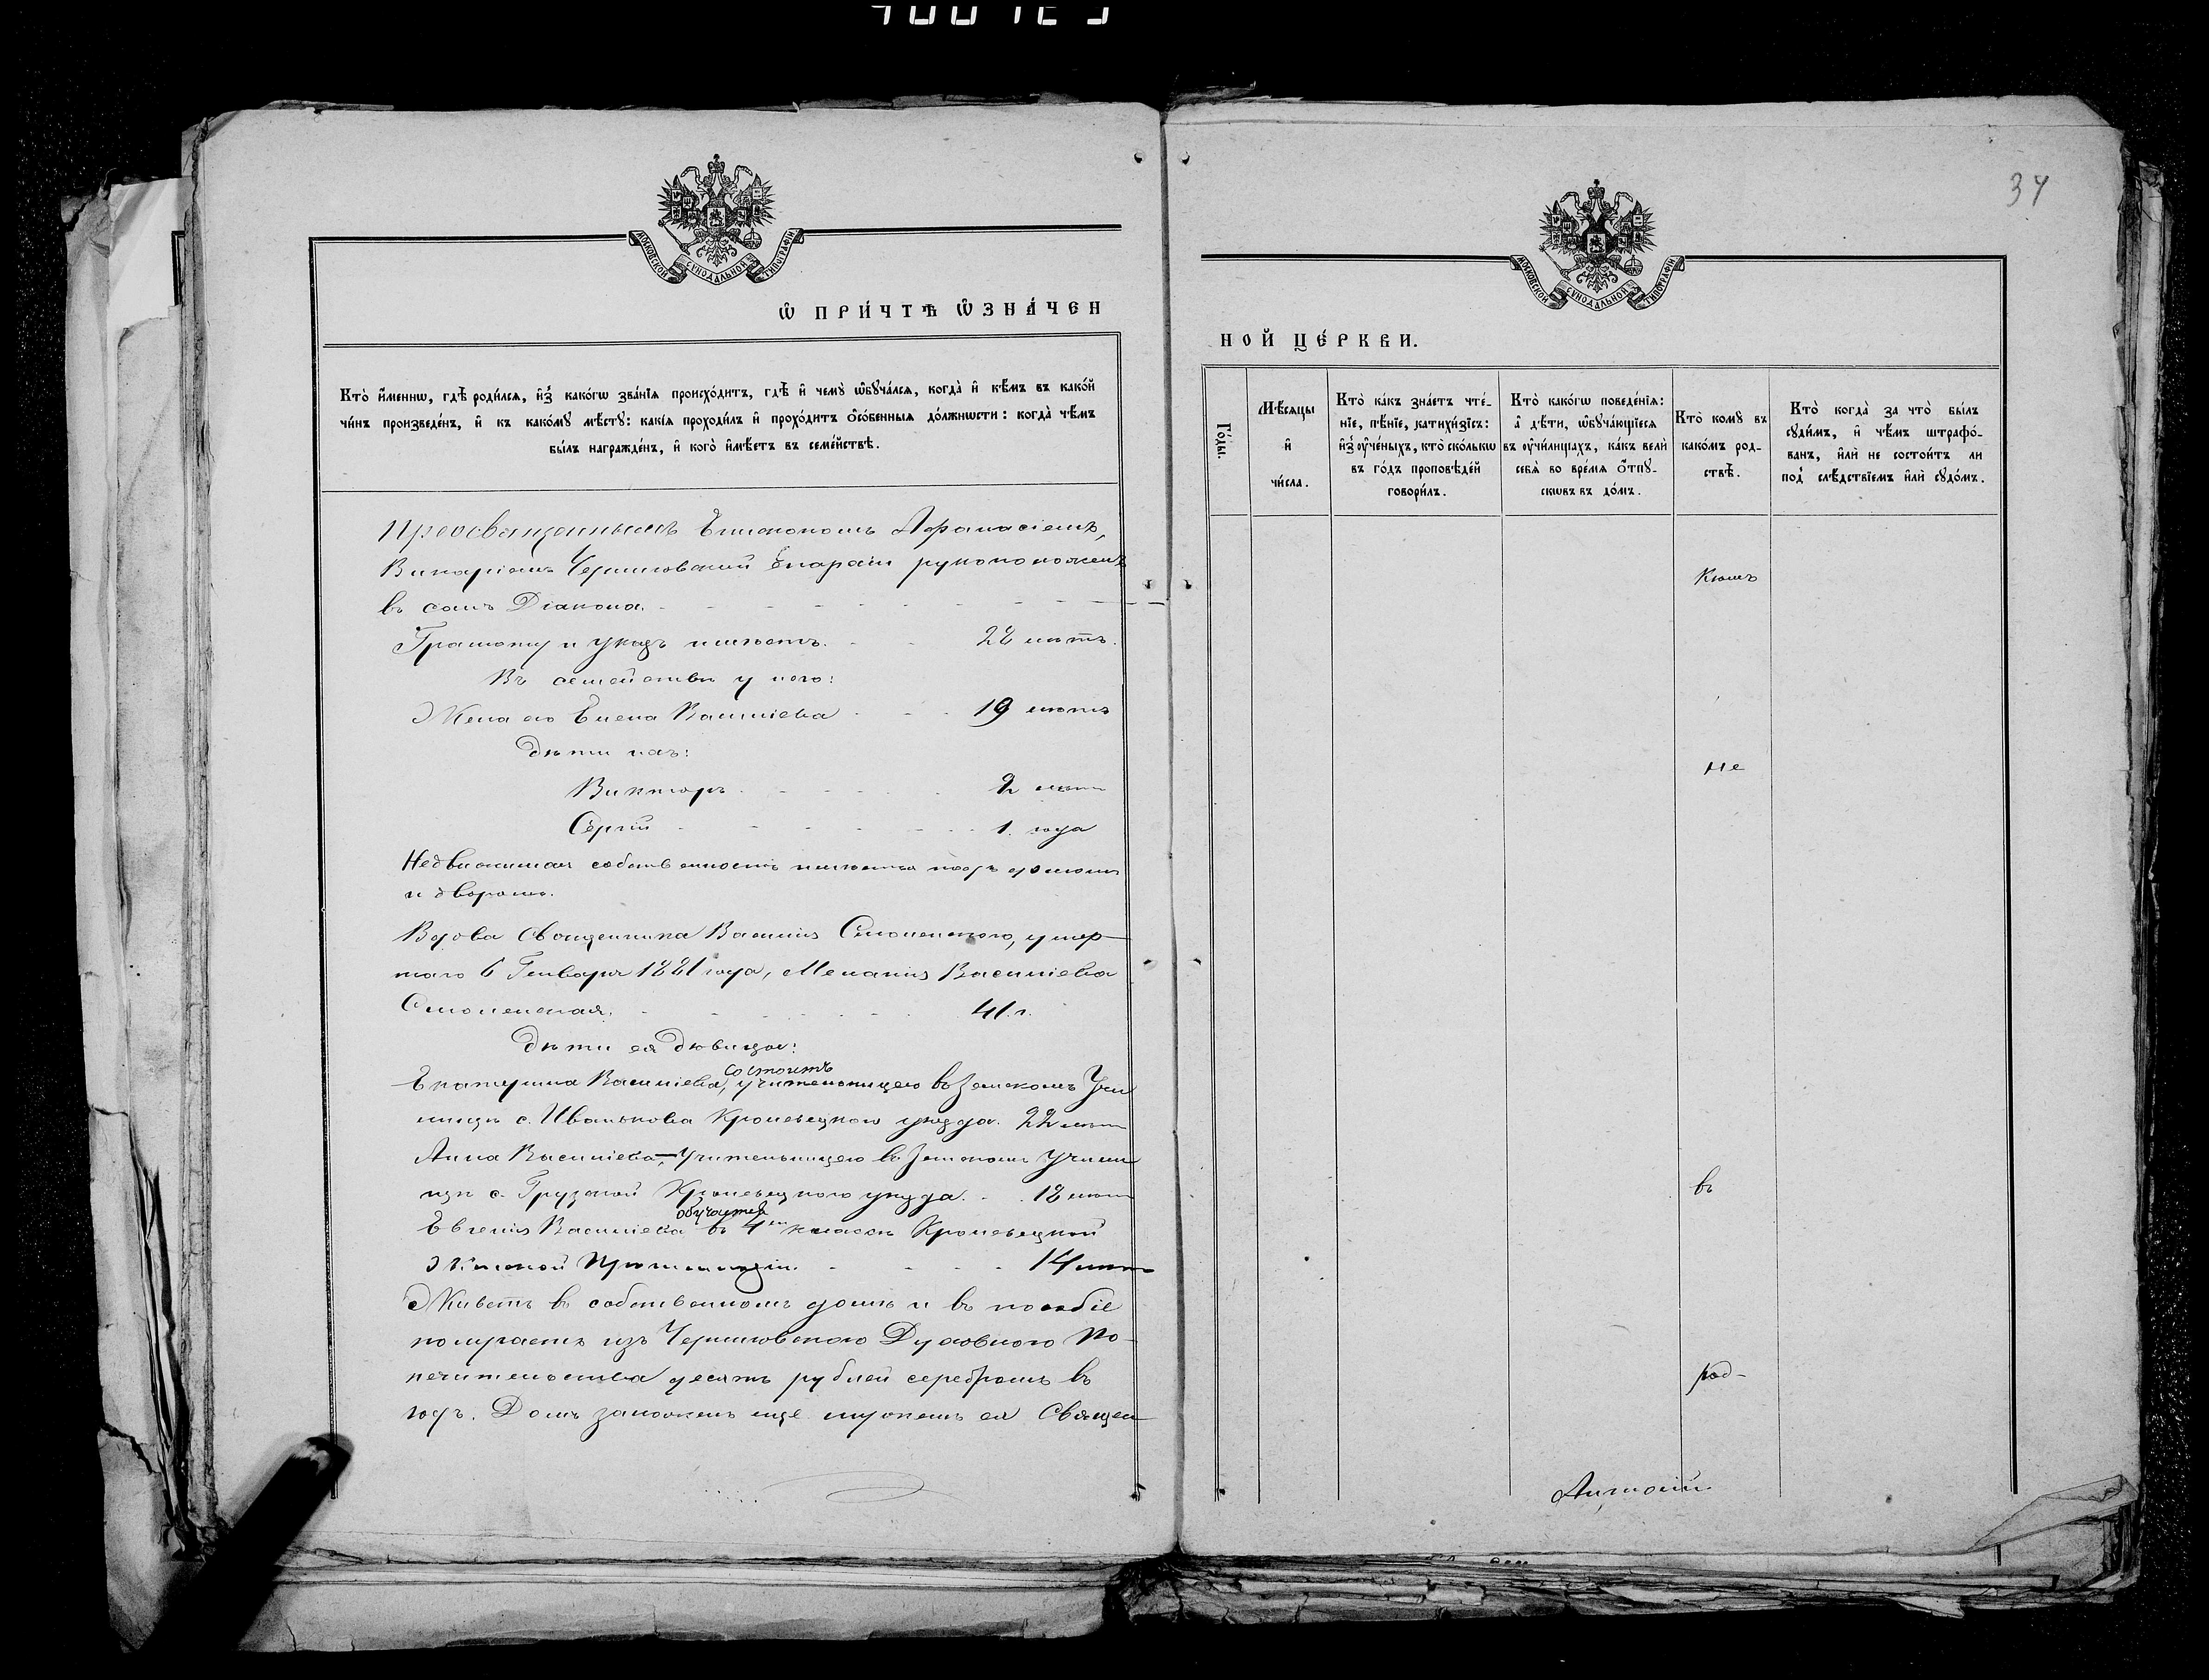 34
МОСКОВСКОЙ СѴНОДАЛЬНОЙ ТИПОГРАФІИ
Ѡ ПРИ́ЧТѢ ѠЗНА́ЧЕН
Кто̀ и҆́меннѡ, гдѣ̀ роди́лся, и҆з̾ како́гѡ зва́нїѧ происхо́дитъ, гдѣ̀ и҆ чемꙋ̀ ѡ҆бꙋча́лсѧ, когда̀ и҆ кѣ́мъ въ како́й
чи́нъ произведе́нъ, и҆ къ како́мꙋ мѣ́стꙋ: какі́ѧ проходи́лъ и҆ прохо́дитъ ѻ҆со́бенныѧ до́лжнѡсти: когда̀ чѣ́мъ
бы́лъ награжде́нъ, и҆ кого̀ и҆мѣ́етъ въ семе́йствѣ.
Преосвященнымъ Епископомъ Афанасіемъ,
Викаріемъ Черниговской Епархіи рукоположенъ
въ санъ Діакона.
Грамоту и указъ имѣетъ. 28 лѣтъ.
Въ семействѣ у него:
Жена его Елена Василіева 19 лѣтъ
Дѣти ихъ:
Викторъ 2 лѣтъ
Сергій 1. года
Недвижимая собственность имѣется подъ домомъ
и дворомъ.
Вдова Священника Василія Смоленского, умер-
шаго 6 Генваря 1881 года, Меланія Василіева
Смоленская. 41. г.
Дѣти ея дѣвицы:
состоитъ
Екатерина Василіева, учительницею въ Земскомъ Учи
лищѣ с. Иванькова Кролевецкого уѣзда. 22 лѣтъ
Анна Василіева, – Учительницею въ Земскомъ Учили
щѣ с. Грузской Кролевецкого уѣзда. 18 лѣтъ
обучается
Евгенія Василіева въ 4мъ классѣ Кролевецкой
Женской Прогимназіи. 14 лѣтъ
Живетъ въ собственномъ домѣ и въ пособіе
получаетъ изъ Черниговского Духовного По-
печительства десять рублей серебромъ въ
годъ. Домъ заложенъ еще мужемъ ея Священ
МОСКОВСКОЙ СѴНОДАЛЬНОЙ ТИПОГРАФІИ
НОЙ ЦЕ́РКВИ.
Го́ды.
Мѣ́сѧцы
и҆
чи́сла.
Кто̀ ка́къ зна́етъ чте́-
нїе, пѣ́нїе, катихи́зїсъ:
и҆з̾ ᲂу҆че́ныхъ, кто̀ ско́лькѡ
въ го́дъ проповѣ́дей
говори́лъ.
Кто̀ како́гѡ поведе́нїѧ:
а҆ дѣ́ти, ѡ҆бꙋча́ющїесѧ
въ ᲂу҆чи́лищахъ, ка́къ велѝ
себѧ̀ во вре́мѧ ѻ҆́тпꙋ-
скѡвъ въ до́мъ.
Кто̀ комꙋ̀ въ
како́мъ род-
ствѣ̀.
Кто̀ когда̀ за что̀ бы́лъ
сꙋди́мъ, и҆ чѣ́мъ штрафо́-
ванъ, и҆лѝ не состои́тъ ли
под̾ слѣ́дствїемъ и҆лѝ сꙋдо́мъ.
Не
въ
род-
Антоній